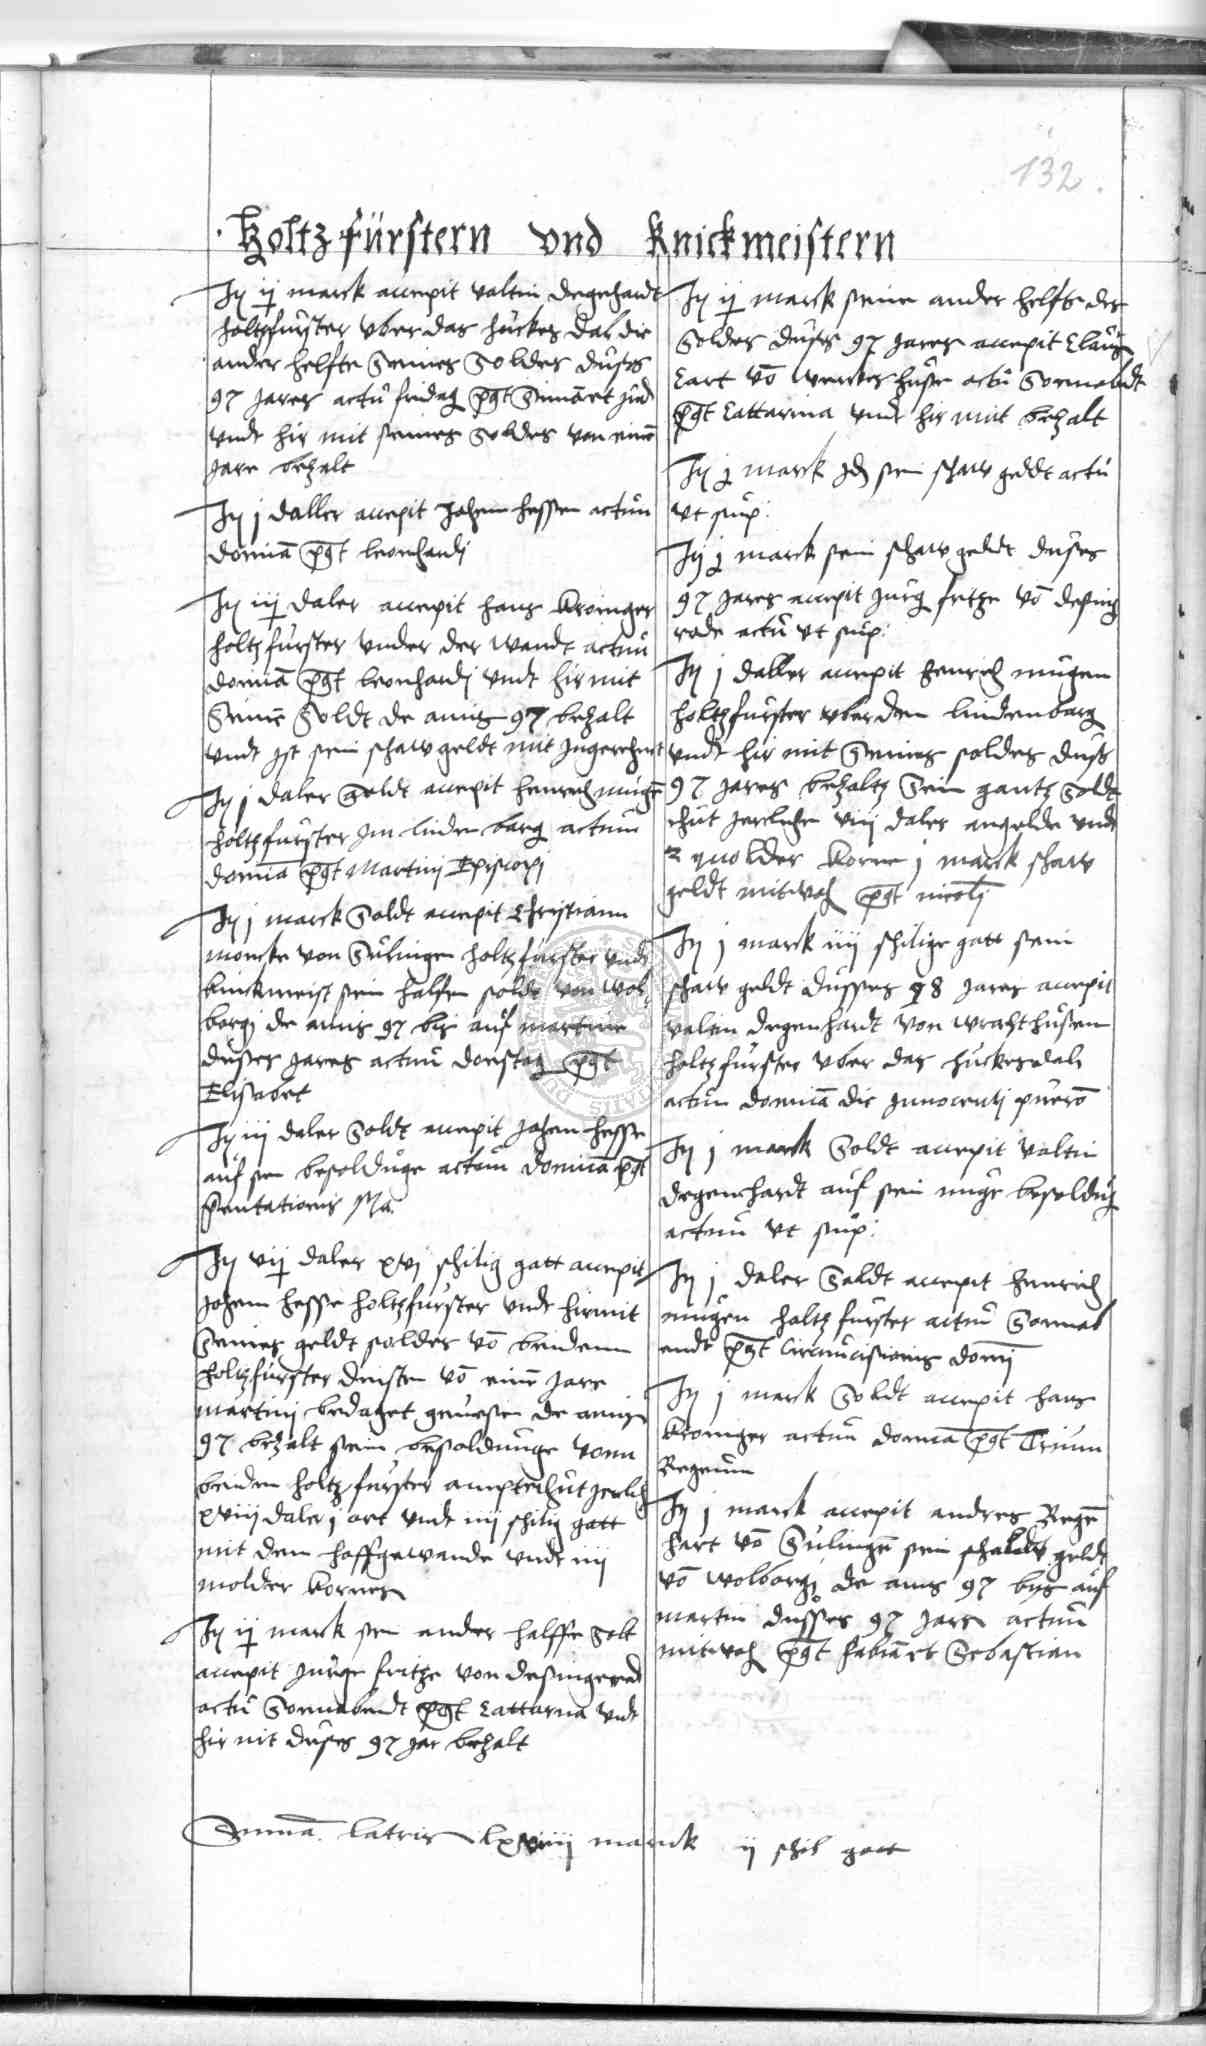 132.
Holtzfürstern vnd Knickmeistern
It ij marck accepit valtin degehardt
holtzfurster vber das huckes dal die
ander helfte seines soldes duses
97 jares actu fridag pst Simon et Jud
vndt hir mit seines soldes von einē
jare bezalt
It j daller accepit Johan hessen actum
dominā pst leonhardj
It iij daler accepit hans Kroniger
holtzfurster vnder der wandt actum
dominā pst leonhardj vndt hir mit
seinē soldt de anis 97 bezalt
vndt ist sein schaw geldt mit ingerehnet
It j daler soldt accepit henrich mugē
holtzfurster im linden barg actum
dominā pst Martinj Episcopj
It j marck soldt accepit Christian
moncke von Sulingen holtzfurster vndt
knickmeist sein halfen soldt von wol
borgj de anis 97 bis auf martinie
duses jares actum donstag pst
Elisabet
It iij daler soldt accepit Johan hesse
auf sin besolduge actum dominā pst
sentationis Ma
It vij daler xvj schilig gatt accepit
Johan hesse holtzfurster vndt hirmit
seines geldt soldes vō beidenn
holtzfurster deinsten vō einē jare
martinj bedaget gewesen de anis
97 bezalt sein besoldunge vonn
beiden holtzfurster ampte thut jerlich
xviij daler j ort vndt iiij schilig gatt
mit dem hoffgewande vndt iiij
molder kornes
It ij marck sin ander halffe solt
accepit Jurge fritze von desingerod
actu Sonnabendt pst Cattarina vndt
hir mit duses 97 jar bezalt
It ij marck seine ander helfte des
soldes duses 97 jares accepit Claus
Eart vō werckshusen actu Sonnabendt
pst Cattarina vndt hir mit bezalt
It j marck Id sin schaw geldt actu
vt sup:
It j marck sein schaw geldt duses
97 jares accepit Jurg fritze vō desing
rode actu vt sup:
It j daller accepit henrich mugen
holtzfurster vber den lindenbarg
vndt hir mit seines soldes duses
97 jares bezaltz sein gantz soldt
thut jerlichen viij daler angelde vndt
2 molder korne j marck schaw
geldt mitwoch pst nicolj
It j marck iiij schilige gatt sein
schaw geldt dusses 98 jares accepit
valtin degenhardt von wrachthusen
holtzfurster vber das huckesdah
actum dominā die Innocentj puerō
It j marck soldt accepit valtin
degenhardt auf sein nuge besoldug
actum vt sup:
It j daler soldt accepit henrich
mugen holtzfurster actum Sonnab
endt pst Circumcisionis dominj
It j marck soldt accepit hans
Kroniger actum dominā pst Trium
Regeum
It j marck accepit andres Regē
hart vō Sulingē sein schalw geldt
vō wolborgj de anis 97 bys auf
martin dusses 97 jars actum
mitwoch pst fabiā et Sebastian
Summa latris lxviiij marck ij schil gatt